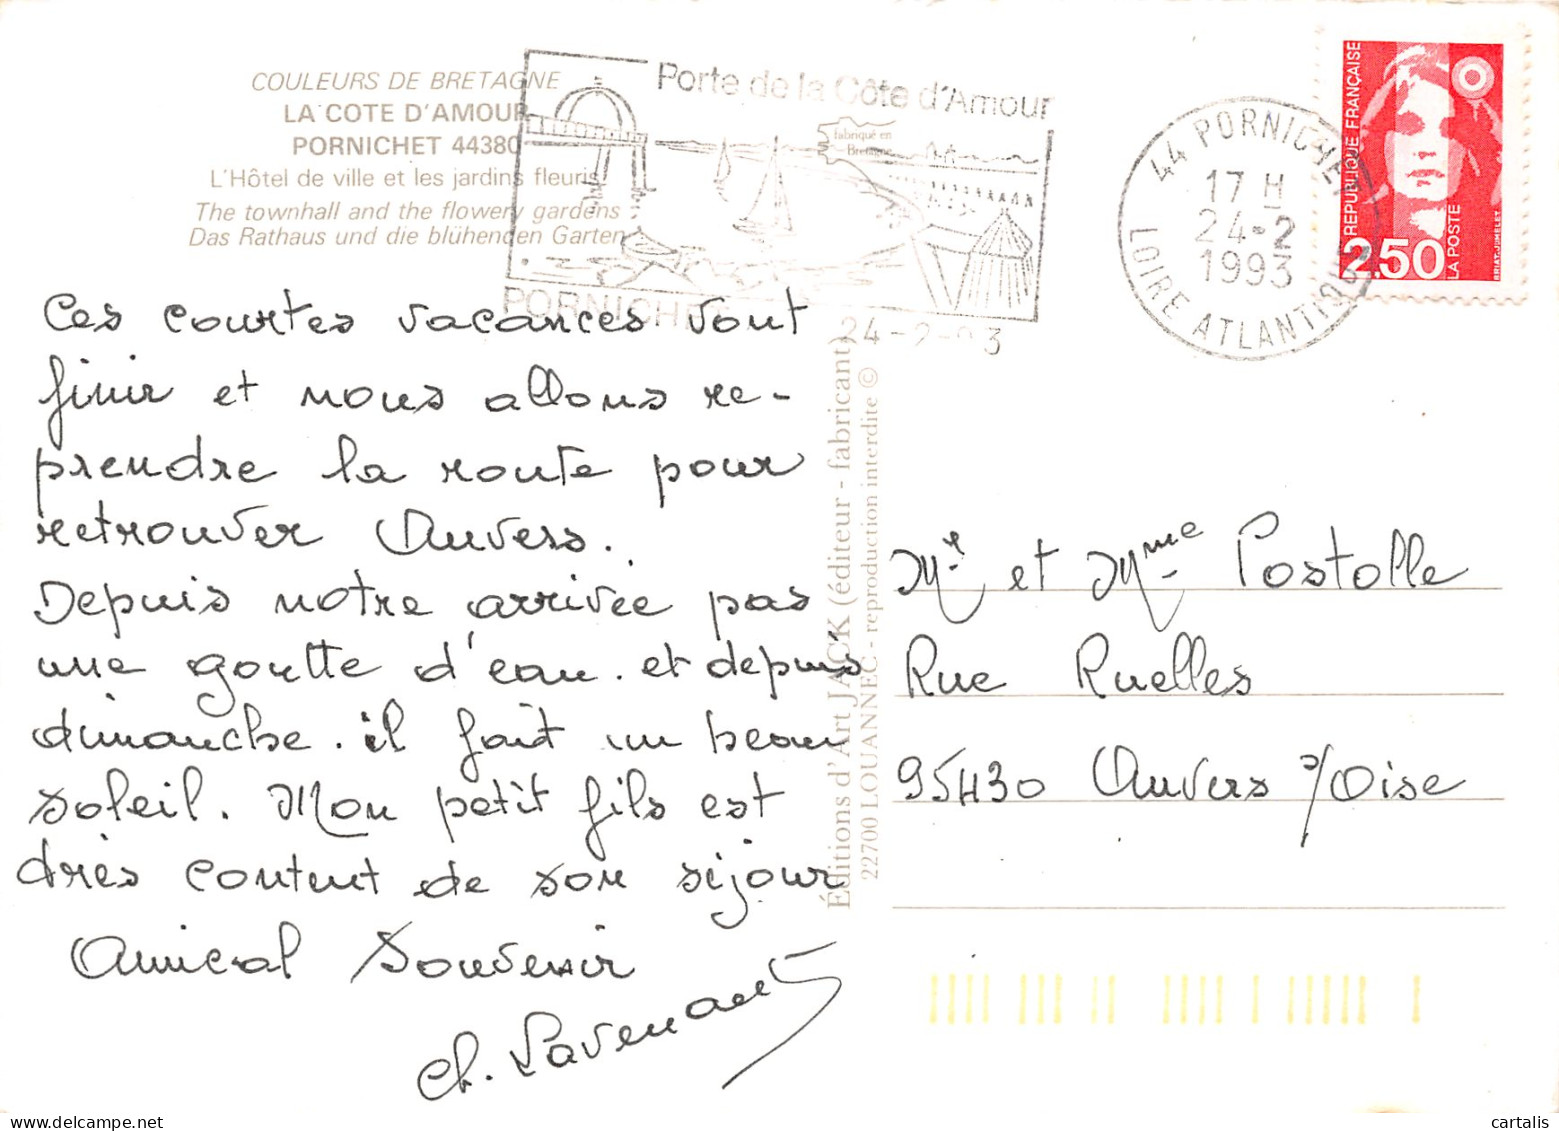 COULEURS DE BRETAGNE
LA COTE D'AMOUR
PORNICHET 44380
L'Hôtel de ville et les jardins fleuris
The townhall and the flowery gardens
Das Rathaus und die blühenden Garten
Porte de la Côte d'Amour
fabriqué en
Bretagne
PORNICHET
24-2-93
44 PORNICHET
17 H
24-2
1993
LOIRE ATLANTIQUE
REPUBLIQUE FRANÇAISE
2.50
LA POSTE
BRIAT-JUMELET
Ces courtes vacances vont
finir et nous allons re-
prendre la route pour
retrouver Auvers.
Depuis notre arrivée pas
une goutte d'eau. et depuis
dimanche. il fait un beau
soleil. Mon petit fils est
très content de son séjour
Amical Souvenir
Ch. Lavenant
Éditions d'Art JACK (éditeur - fabricant)
22700 LOUANNEC - reproduction interdite ©
Mr et Mme Postolle
Rue Ruelles
95430 Auvers s/Oise
cartalis